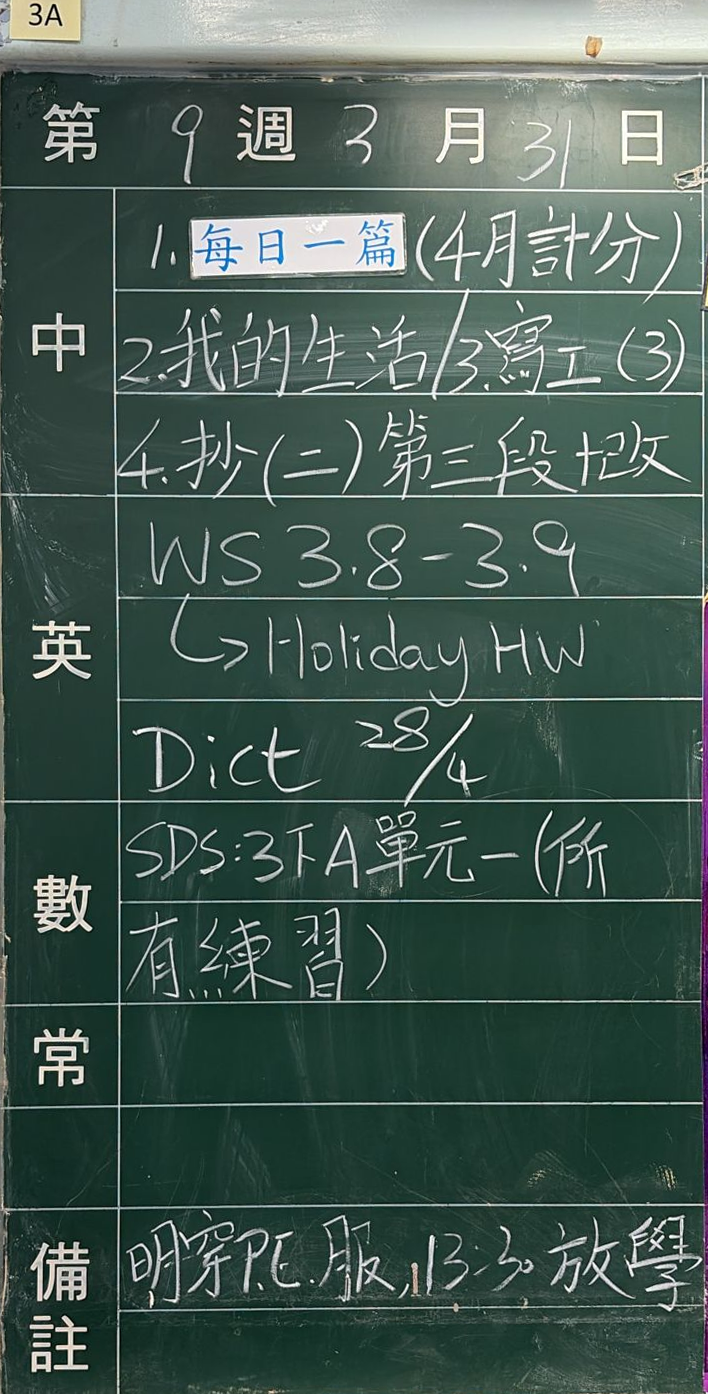 3A
第 9 週 3 月 31 日
中
1. 每日一篇 (4月計分)
2.我的生活/3.寫工(3)
4.抄(二)第三段+改
英
WS 3.8-3.9
↳ Holiday HW
Dict 28/4
數
SDS:3下A單元一(所
有練習)
常
備註
明穿P.E.服,13:30放學